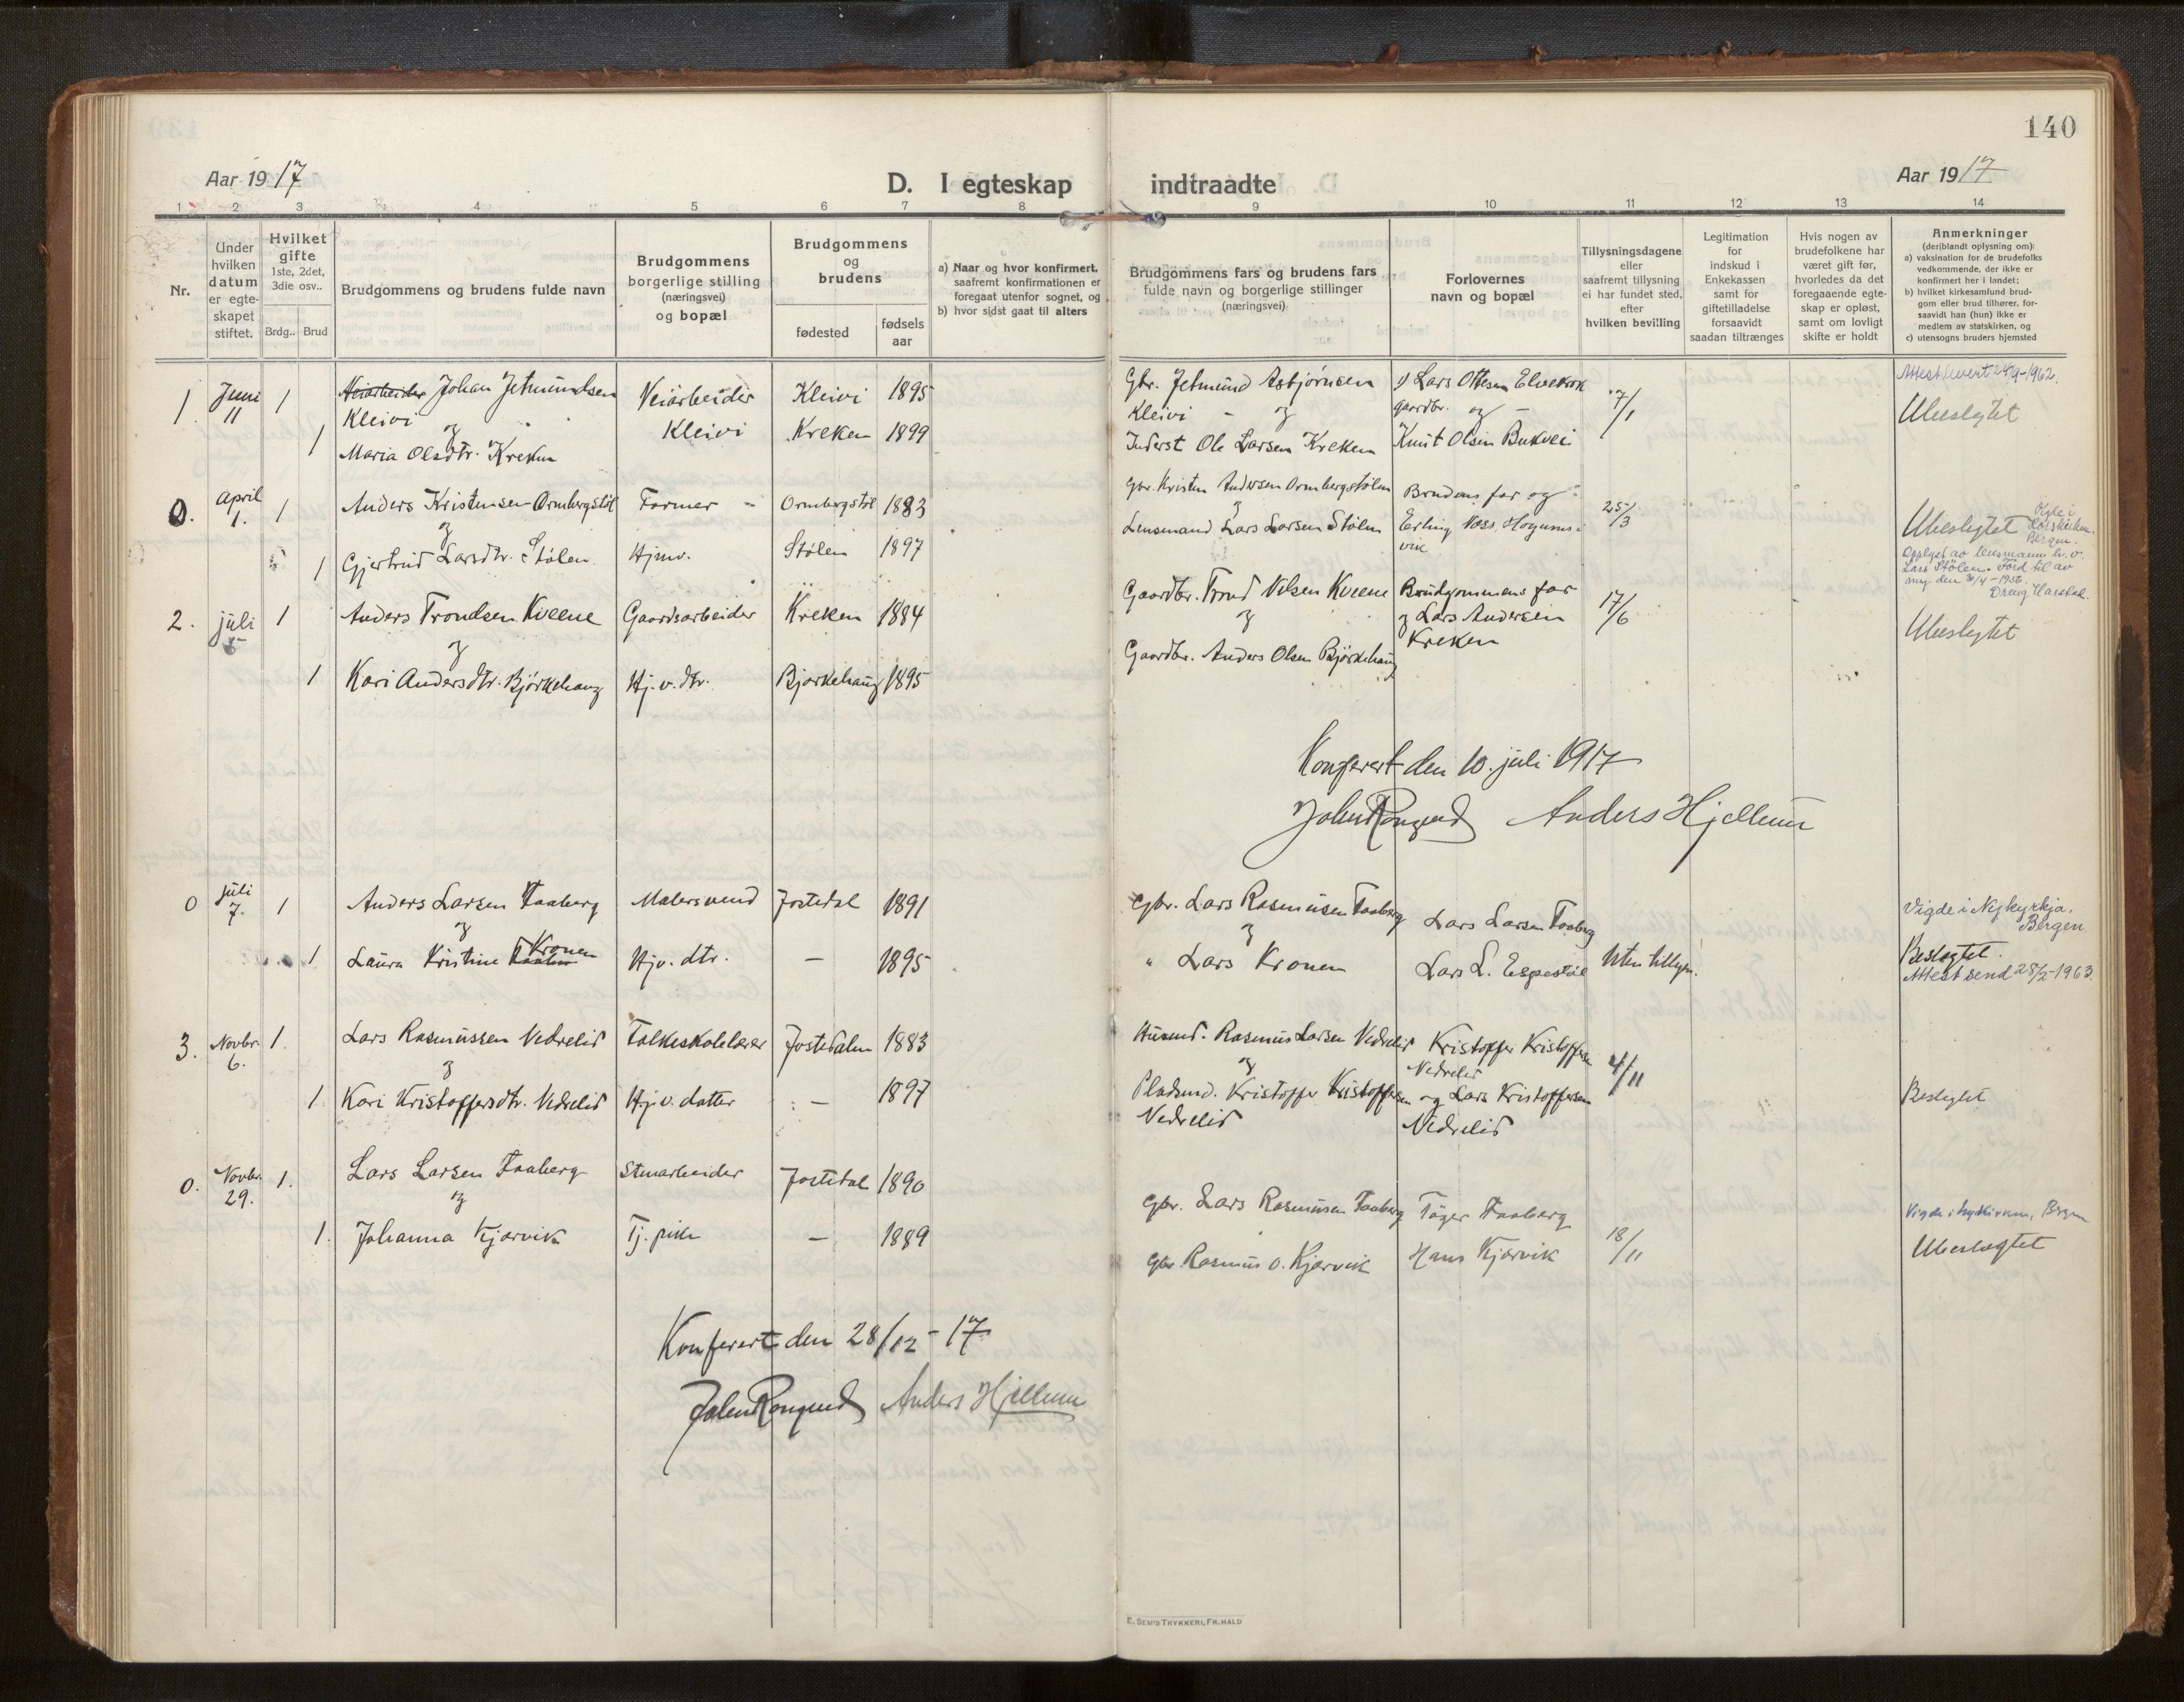 140
Aar 1917
D. I egteskap indtraadte
Aar 1917
1 2 3 4 5 6 7 8 9 10 11 12 13 14
Nr.
Under hvilken datum er egte-skapet stiftet.
Hvilket gifte
1ste, 2det, 3die osv..
Brdg.. Brud
Brudgommens og brudens fulde navn
Brudgommens borgerlige stilling (næringsvei) og bopæl
Brudgommens og brudens
fødested
fødsels aar
a) Naar og hvor konfirmert, saafremt konfirmationen er foregaat utenfor sognet, og
b) hvor sidst gaat til alters
Brudgommens fars og brudens fars fulde navn og borgerlige stillinger (næringsvei)
Forlovernes navn og bopæl
Tillysningsdagene eller saafremt tillysning ei har fundet sted, efter hvilken bevilling
Legitimation for indskud i Enkekassen samt for giftetilladelse forsaavidt saadan tiltrænges
Hvis nogen av brudefolkene har været gift før, hvorledes da det foregaaende egte-skap er opløst, samt om lovligt skifte er holdt
Anmerkninger
(deriblandt oplysning om):
a) vaksination for de brudefolks vedkommende, der ikke er konfirmert her i landet;
b) hvilket kirkesamfund brud-gom eller brud tilhører, for-saavidt han (hun) ikke er medlem av statskirken, og
c) utensogns bruders hjemsted
1. Juni 11 1 Veiarbeider Johan Jetmundsen Kleivi Veiarbeider Kleivi Kleivi 1895
og
1 Maria Olsdtr. Kreken Kreken 1899
Gbr. Jetmund Asbjørnsen Kleivi - og
Inderst Ole Larsen Kreken
1) Lars Ottesen Elvekrok gaardbr. og -
Knut Olsen Bukvei
17/1
Attest levert 24/9-1962.
Ubeslegtet
0. April 1. 1 Anders Kristensen Ormbergstøl Farmer - Ormbergstøl 1883
og
1 Gjertrud Larsdtr. Stølen Hjmv. Stølen 1897
Gbr. Kristen Andersen Ormbergstølen
og
Lensmand Lars Larsen Stølen
Brudens far og
Erling Voss.
vik
25/3
Ubeslegtet
Bergen.
Opplyst av lensmann
Lars Stølen. Ført til av
meg den 30/4-1956.
2. juli 5 1 Anders Trondsen Kveene Gaardsarbeider Kreken 1884
og
1 Kari Andersdtr. Bjørkehaug Hj.v.dtr. Bjørkehaug 1895
Gaardbr. Trond Nilsen Kveene
og
Gaardbr. Anders Olsen Bjørkehaug
Brudgommens far
og Lars Andersen
Kreken
17/6
Ubeslegtet
Konferert den 10. juli 1917
Anders Hjellum
0 juli 7. 1 Anders Larsen Faaberg Malersvend Jostedal 1891
og
1 Laura Kristine Kronen Hjv. dtr. - 1895
Gbr. Lars Rasmusen Faaberg
og
" Lars Kronen
Lars Larsen Faaberg
Lars L. Espestøl
Uten tillysn.
Vigde i Nykyrkja, Bergen.
Beslegtet.
Attest send 28/2-1963
3. Novbr. 6. 1. Lars Rasmussen Vedrelid Folkeskolelærer Jostedalen 1883
og
1. Kari Kristoffersdtr. Vedrelid Hj.v. datter - 1897
Husmd. Rasmus Larsen Vedrelid
og
Pladsmd. Kristoffer Kristoffersen
Vedrelid
Kristoffer Kristoffersen
Vedrelid
og Lars Kristoffersen
Vedrelid
4/11
Beslegtet
0. Novbr. 29. 1. Lars Larsen Faaberg Stenarbeider Jostedal 1890
og
1. Johanna Kjærvik Tj. pike - 1889
Gbr. Lars Rasmusen Faaberg
Gbr. Rasmus O. Kjærvik
Tøger Faaberg
Hans Kjærvik
18/11
Vigde i Nykirken, Bergen
Ubeslægtet
Konferert den 28/12-17
Anders Hjellum
E. SEM'S TRYKKERI, FR.HALD